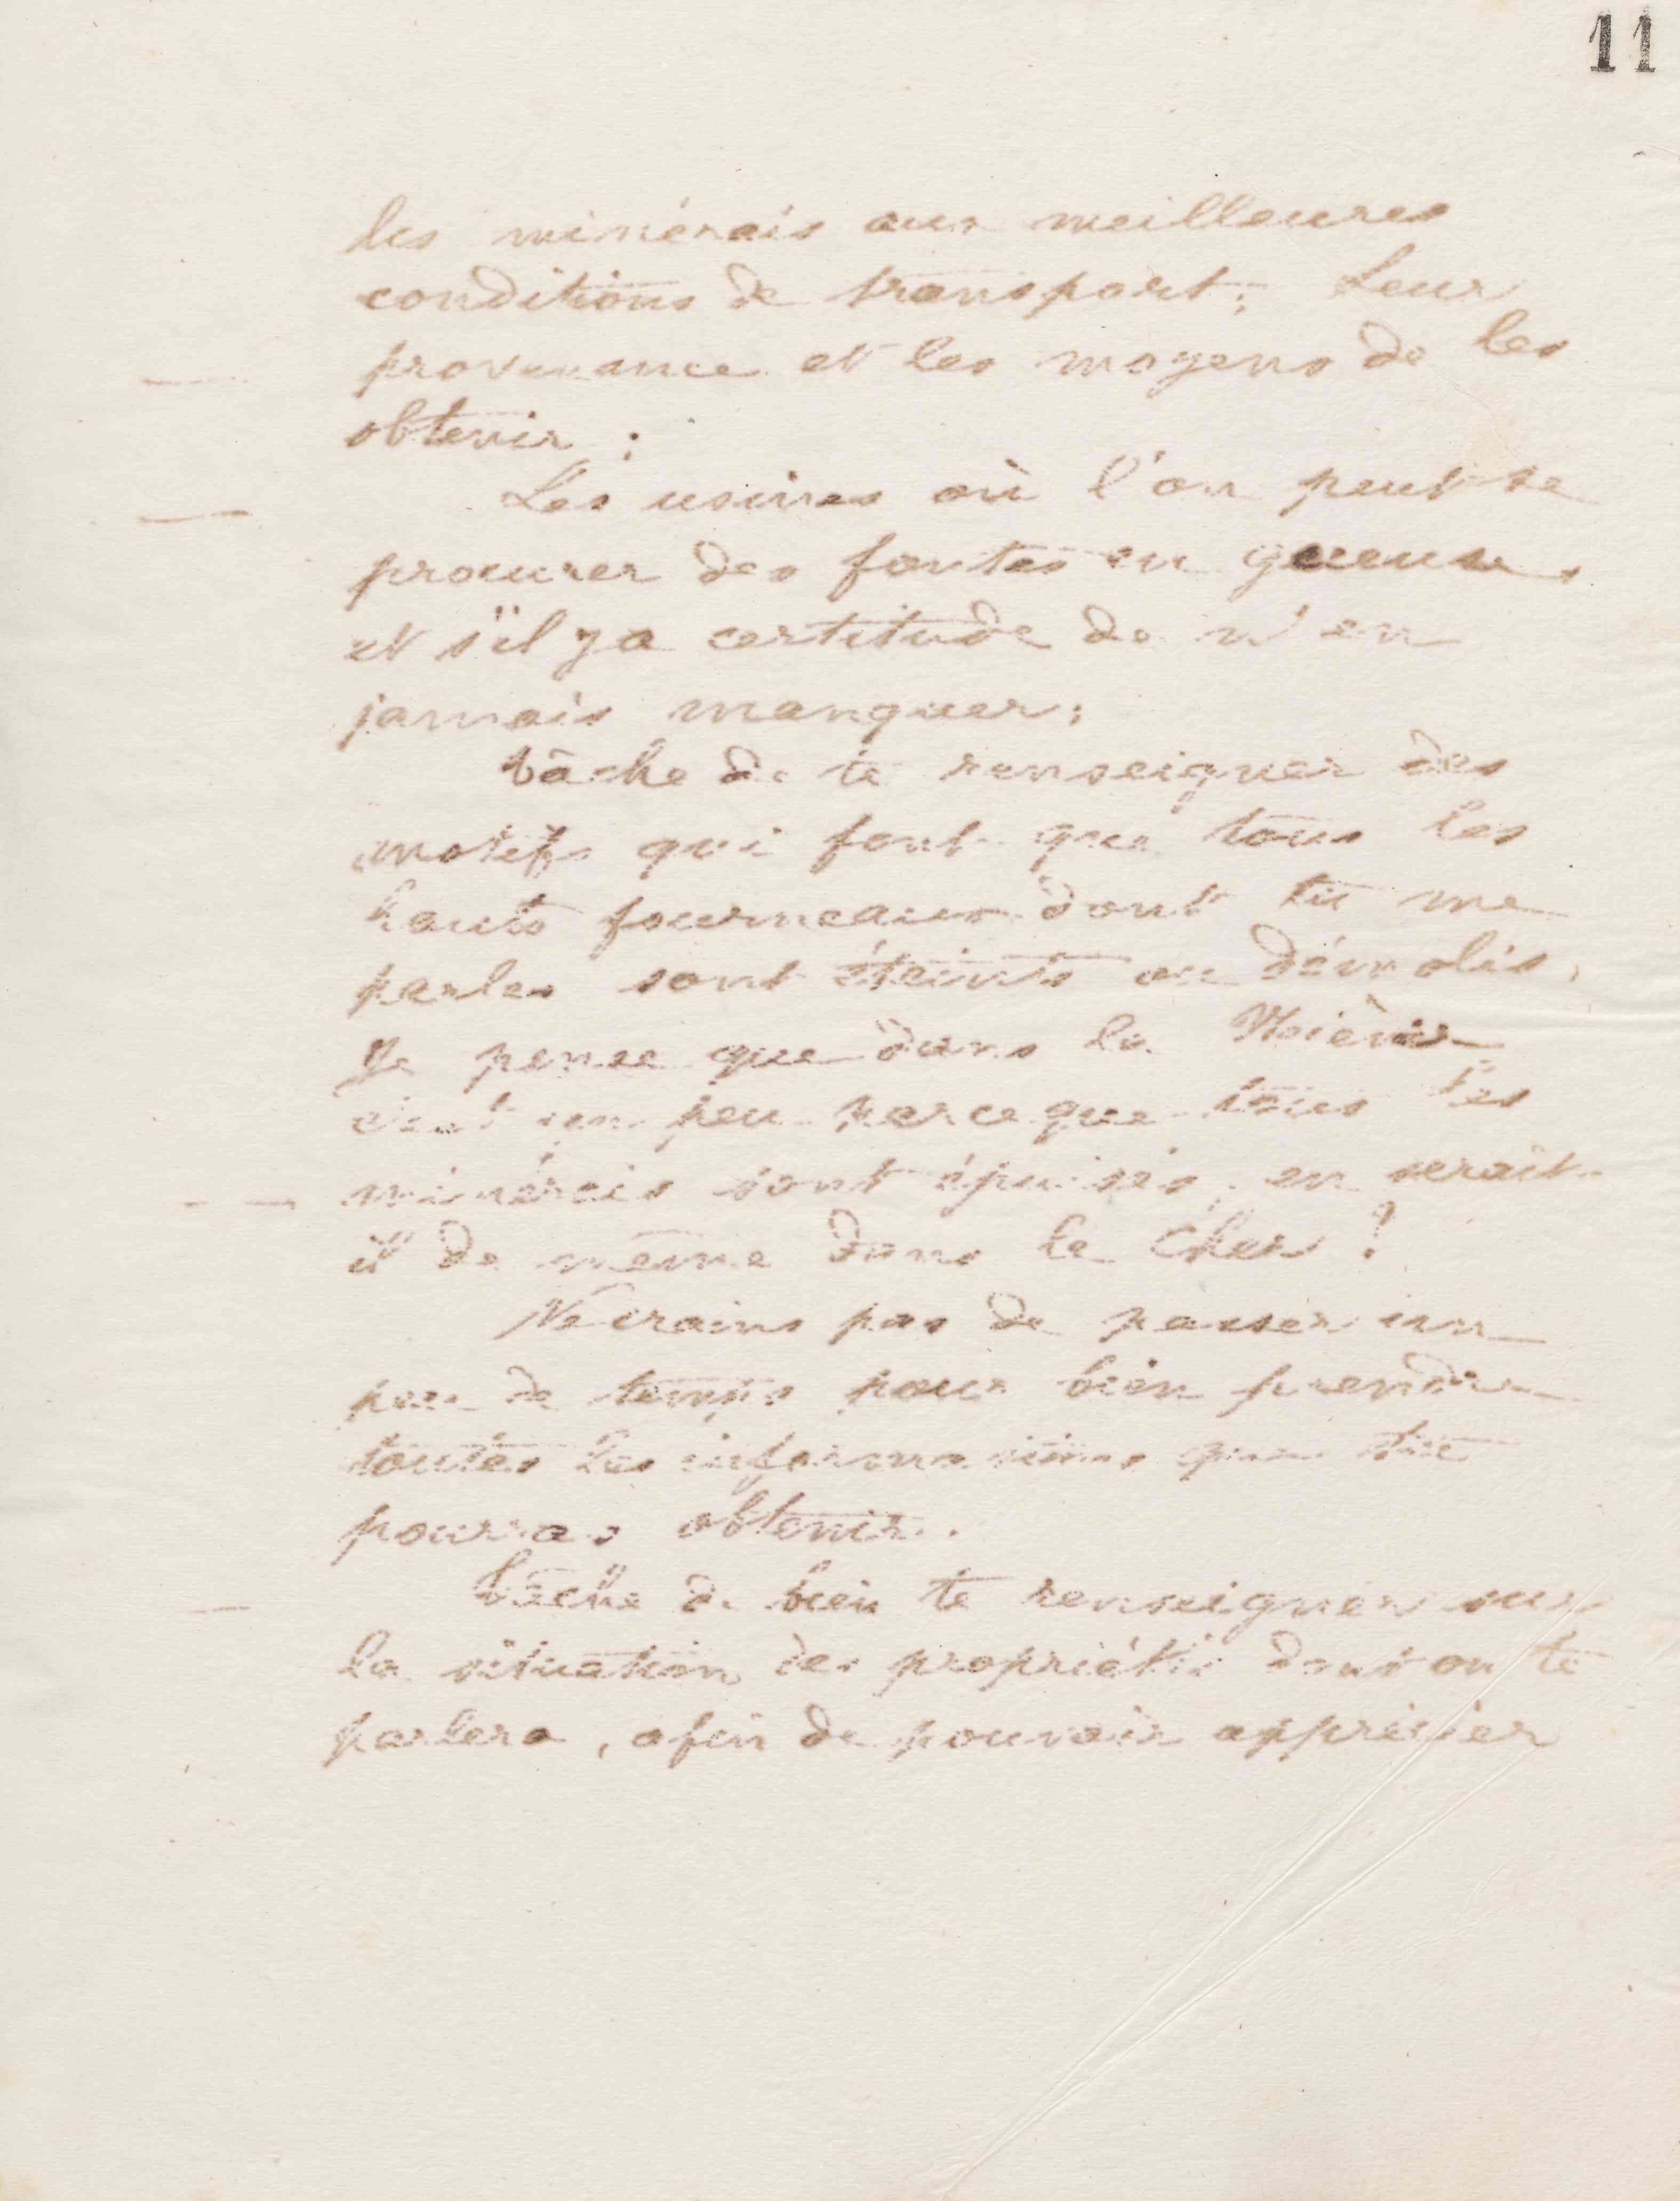 11
les minérais aux meilleures
conditions de transport; Leur
provenance et les moyens de les
obtenir;
Les usines où l'on peut se
procurer des fontes en gueuses
et s'il y a certitude de n'en
jamais manquer;
tâche de te renseigner des
motifs qui font que tous les
hauts fourneaux dont tu me
parles sont éteints ou démolis,
Je pense que dans la
c'est un peu parce que tous les
minérais sont épuisés, en serait-
il de même dans le Cher?
Ne crains pas de passer un
peu de temps pour bien prendre
toutes les informations que tu
pourras obtenir.
tâche de bien te renseigner sur
la situation des propriétés dont on te
parlera, afin de pouvoir apprécier